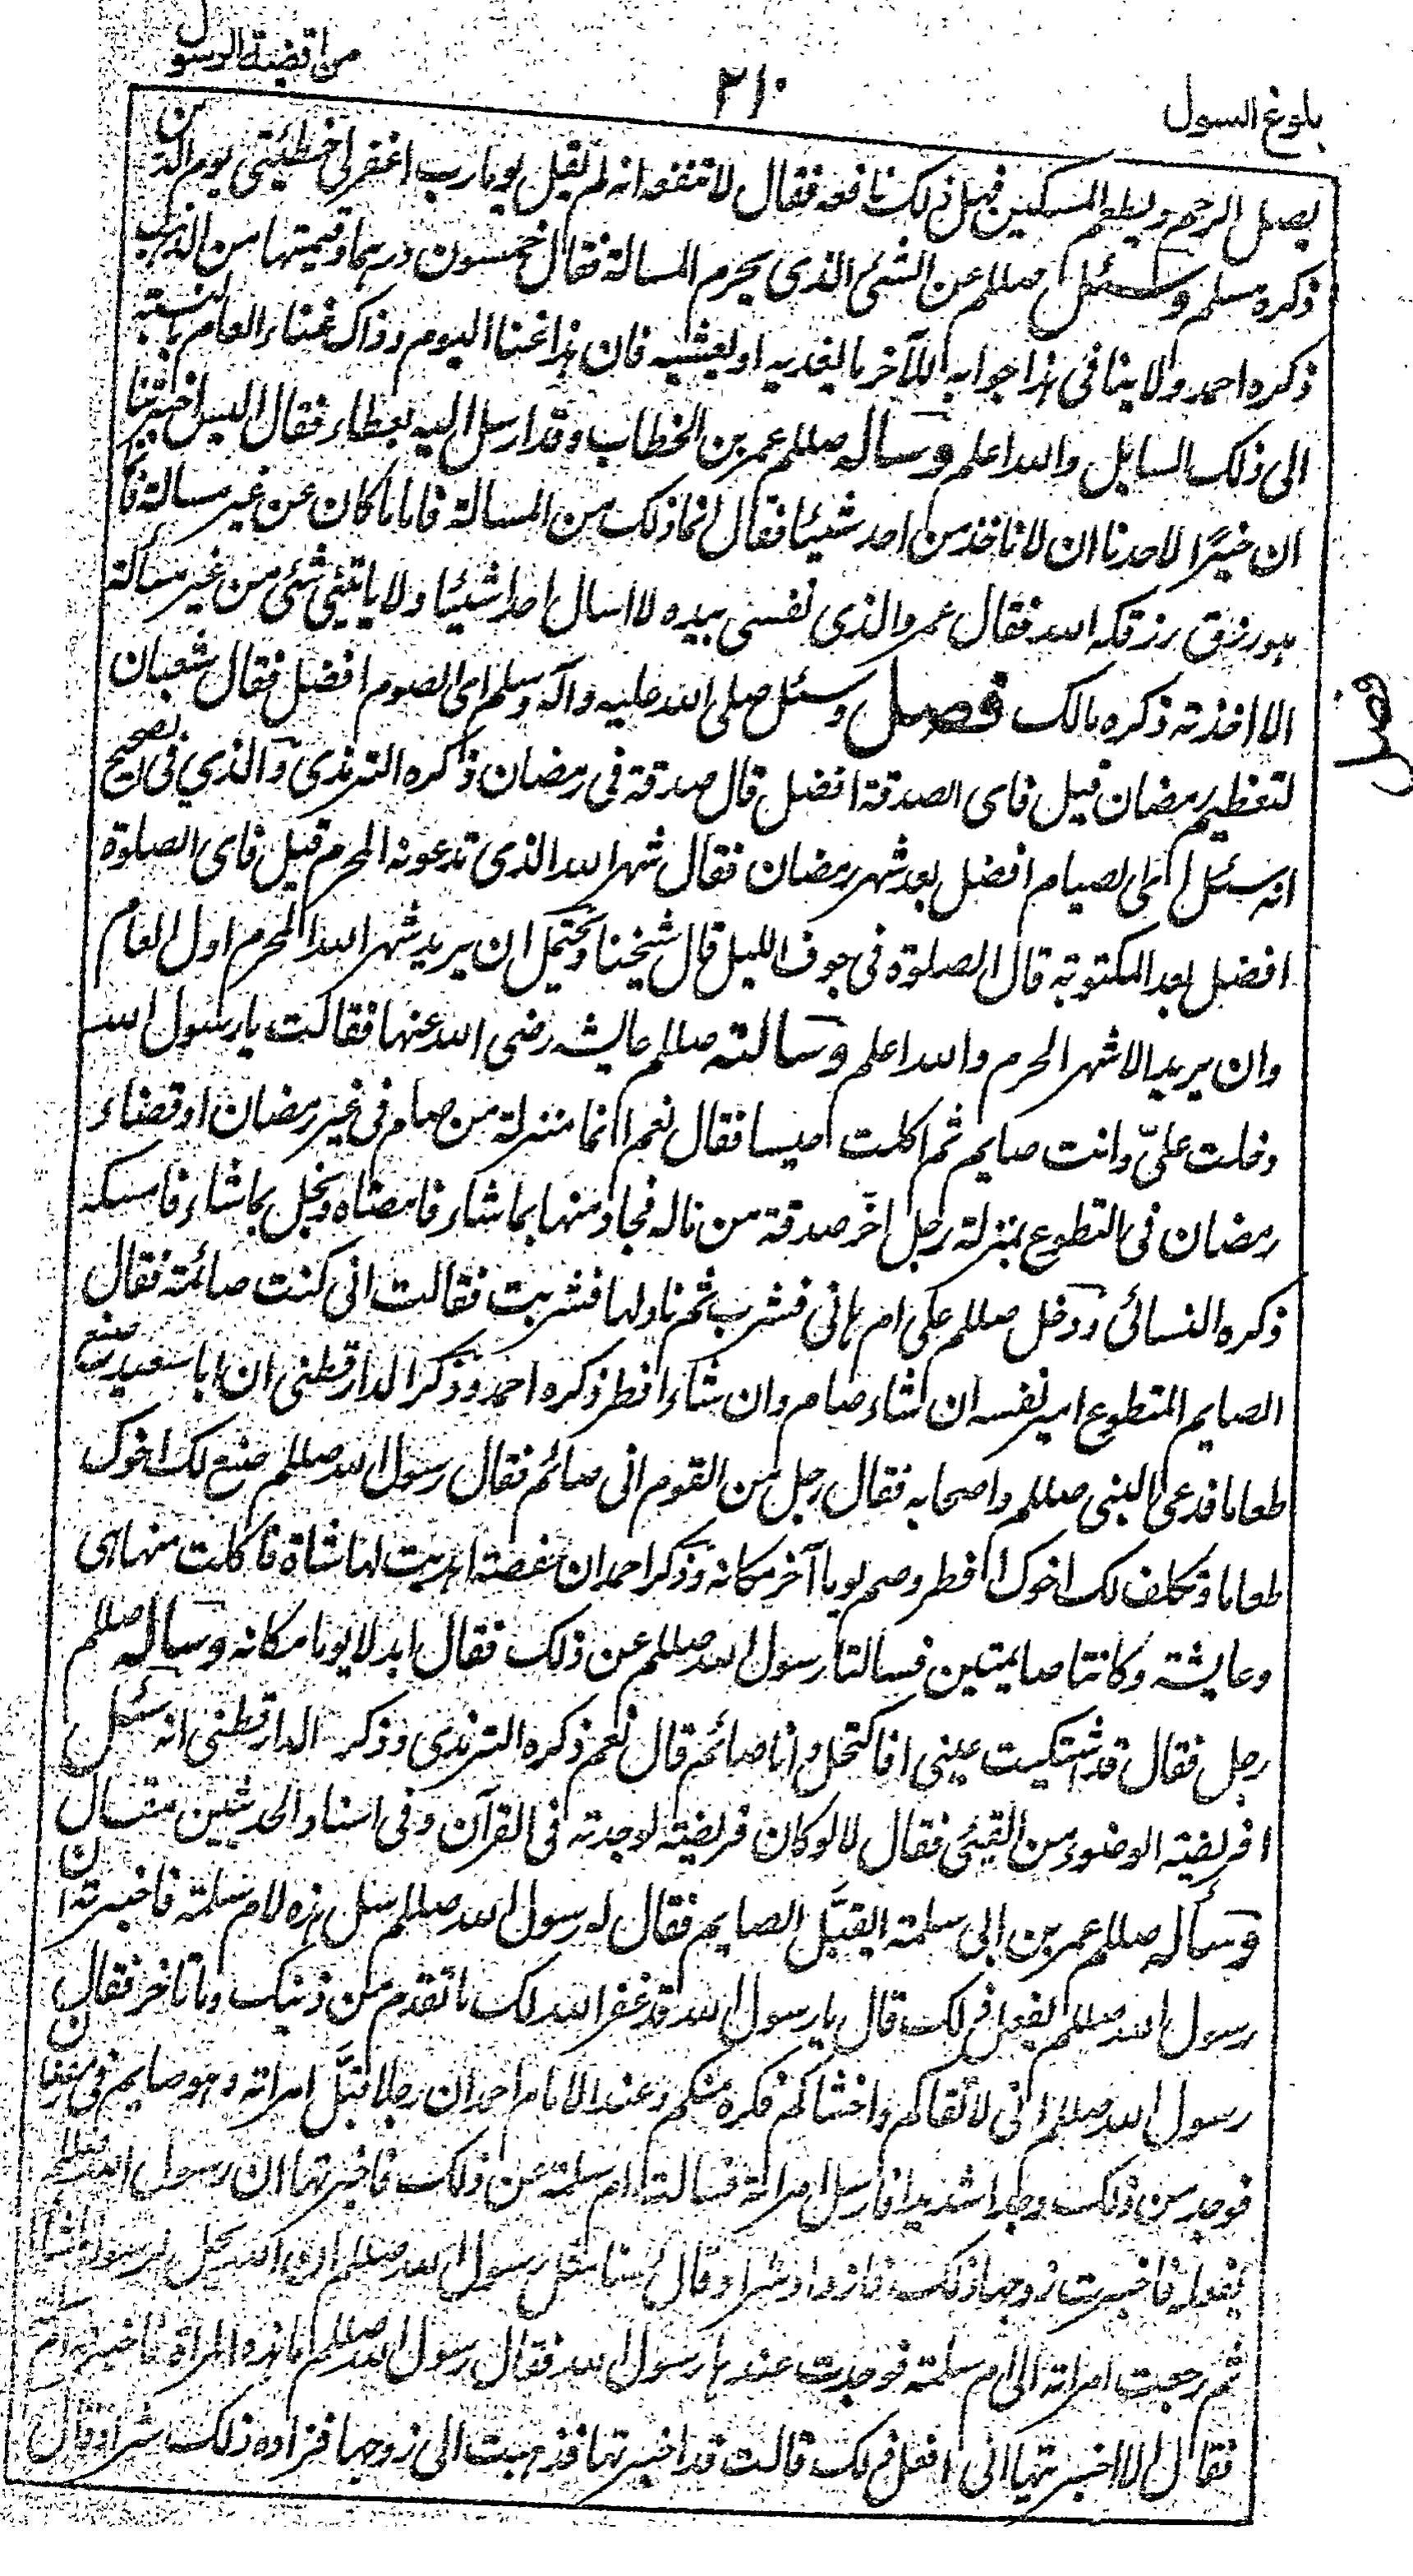 بلوغ السول
۲۱۰
من اقضیة الرسول
یصل الرحم ویطعم المسکین فهل ذلک نافعه فقال لا تنفعه انه لم یقل یوما رب اغفر لی خطیئتی یوم الدین
ذکره مسلم وسئل صللم عن الشئ الذی یحرم المسالة فقال خمسون درهما او قیمتها من الذهب
ذکره احمد ولا ینافی هذا جوابه للآخر ما یغدیه او یعشیه فان هذا غنا الیوم وذاک غناء العام بالنسبة
الی ذلک السایل والله اعلم وساله صللم عمر بن الخطاب وقد ارسل الیه بعطاء فقال الیس اخبرتنا
ان خیرًا لاحدنا ان لا ناخذ من احد شیئا فقال انما ذلک من المسالة فاما ما کان عن غیر مسالة فانما
هو رزق رزقکه الله فقال عمر والذی نفسی بیده لا اسال احدا شیئا ولا یاتینی شئ من غیر مسألة
الا اخذته ذکره مالک فصل وسئل صلی الله علیه وآله وسلم ای الصوم افضل فقال شعبان
فصل
لتعظیم رمضان قیل فای الصدقة افضل قال صدقة فی رمضان ذکره الترمذی والذی فی الصحیح
انه سئل ای الصیام افضل بعد شهر رمضان فقال شهر الله الذی تدعونه المحرم قیل فای الصلوة
افضل بعد المکتوبة قال الصلوة فی جوف اللیل قال شیخنا ویحتمل ان یرید شهر الله المحرم اول العام
وان یرید الاشهر الحرم والله اعلم وسالته صللم عایشه رضی الله عنها فقالت یا رسول الله
دخلت علیّ وانت صایم ثم اکلت حیسا فقال نعم انما منزلة من صام فی غیر رمضان او قضاء
رمضان فی التطوع بمنزلة رجل اخّر صدقة من ماله فجاد منها بما شاء فامضاه وبخل بما شاء فامسکه
ذکره النسائی ودخل صللم علی ام هانی فشرب ثم ناولها فشربت فقالت انی کنت صائمة فقال
الصایم المتطوع امیر نفسه ان شاء صام وان شاء افطر ذکره احمد وذکر الدارقطنی ان ابا سعید صنع
طعاما فدعی النبی صللم واصحابه فقال رجل من القوم انی صائم فقال رسول الله صللم صنع لک اخوک
طعاما وتکلف لک اخوک افطر وصم یوما آخر مکانه وذکر احمد ان حفصة اهدیت لها شاة فاکلت منها هی
وعایشة وکانتا صایمتین فسالتا رسول الله صللم عن ذلک فقال ابدلا یوما مکانه وساله صللم
رجل فقال قد اشتکیت عینی افاکتحل وانا صائم قال نعم ذکره الترمذی وذکر الدارقطنی انه سئل
افریضة الوضوء من القیئ فقال لا لو کان فریضة لوجدته فی القرآن وفی اسناد الحدیثین مقال
وسأله صللم عمر بن ابی سلمة ایقبّل الصایم فقال له رسول الله صللم سل هذه لام سلمة فاخبرته ان
رسول الله صللم یفعل ذلک قال یا رسول الله قد غفر الله لک ما تقدم من ذنبک وما تاخر فقال
رسول الله صللم انی لأتقاکم واخشاکم ذکره مسلم وعند الامام احمد ان رجلا قبّل امراته وهو صایم فی رمضان
فوجد من ذلک وجدا شدیدا فارسل امراته فسالت ام سلمة عن ذلک فاخبرتها ان رسول الله صللم
یفعله فاخبرت زوجها ذلک فازداد شرا وقال لسنا مثل رسول الله صللم ان الله یحل لرسوله ما شاء
ثم رجعت امراته الی ام سلمة فوجدت عندها رسول الله فقال رسول الله صللم ما هذه المراة فاخبرته ام سلمة
فقال الا اخبرتها انی افعل ذلک قالت قد اخبرتها فذهبت الی زوجها فزاده ذلک شرا وقال